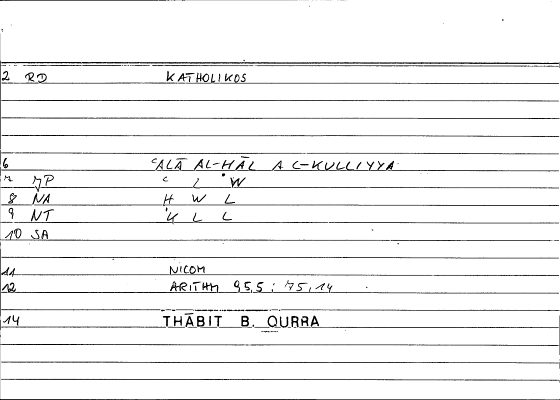 2 RD KATHOLIKOS
6 ʿALĀ AL-HĀL AL-KULLIYYA
7 MP ʿ L W
8 NA H W L
9 NT K L L
10 SA
11 NICOM
12 ARITHM 95,5 : 75,14
14 THĀBIT B. QURRA